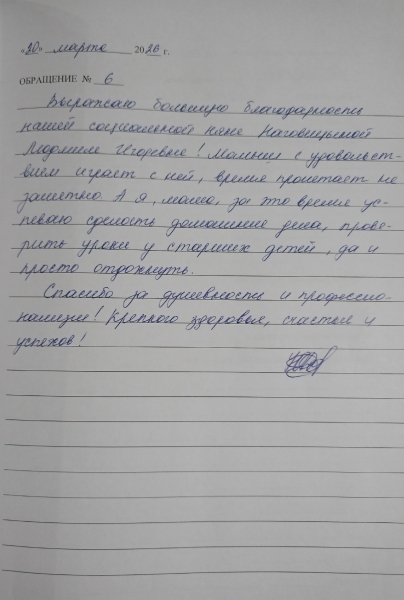 «20» марта 2026 г.
ОБРАЩЕНИЕ № 6
Выражаю большую благодарность
нашей социальной няне Наговицыной
Людмиле Игоревне! Малыш с удовольст-
вием играет с ней, время пролетает не
заметно. А я, мама, за это время ус-
певаю сделать домашние дела, прове-
рить уроки у старших детей, да и
просто отдохнуть.
Спасибо за душевность и профессио-
нализм! Крепкого здоровья, счастья и
успехов!